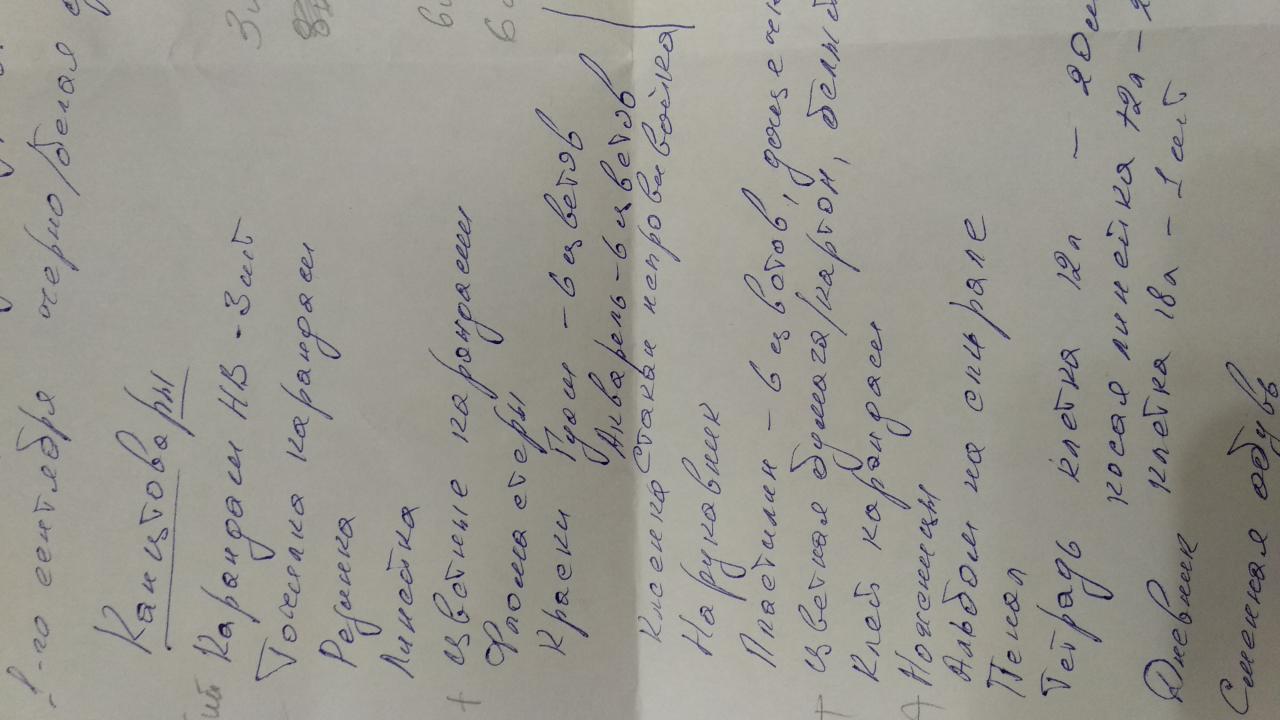 1-го сентября очерно/белая
Канцтовары
Карандаш НВ - 3 шт
Точилка карандаш
Резинка
Линейка
+ Цветные карандаши
Фломастеры
Краски Гуаш - 6 цветов
Акварель - 6 цветов
Клеенка Стакан непроливайка
Нарукавник
Пластилин - 6 цветов,
+ Цветная бумага/картон, белый
Клей карандаш
+ Ножницы
Альбом на спирале
Пенал
Тетрадь клетка 12л - 20
косая линейка 12л -
Дневник клетка 18л - 1 шт
Сменная обувь